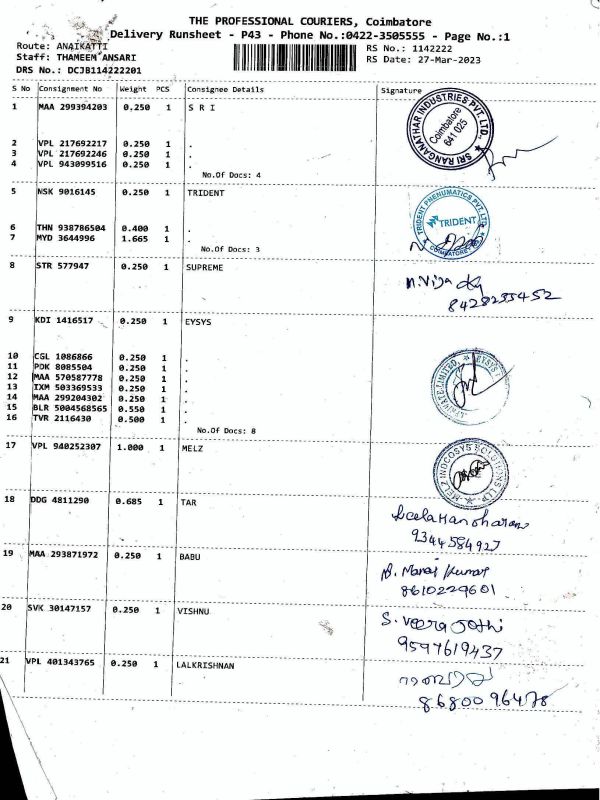 THE PROFESSIONAL COURIERS, Coimbatore
Delivery Runsheet - P43 - Phone No.:0422-3505555 - Page No.:1
Route: ANAIKATTI RS No.: 1142222
Staff: THAMEEM ANSARI RS Date: 27-Mar-2023
DRS No.: DCJB114222201
S No Consignment No Weight PCS Consignee Details Signature
1 MAA 299394203 0.250 1 S R I
SRI RANGANATHAR INDUSTRIES PVT. LTD.,
Coimbatore
641 025
2 VPL 217692217 0.250 1 .
3 VPL 217692246 0.250 1 .
4 VPL 943099516 0.250 1 .
No.Of Docs: 4
5 NSK 9016145 0.250 1 TRIDENT
TRIDENT PNEUMATICS PVT. LTD
TRIDENT
COIMBATORE
6 THN 938786504 0.400 1 .
7 MYD 3644996 1.665 1 .
No.Of Docs: 3
8 STR 577947 0.250 1 SUPREME
8428235452
9 KDI 1416517 0.250 1 EYSYS
10 CGL 1086866 0.250 1 .
11 PDK 8085504 0.250 1 .
12 MAA 570587778 0.250 1 .
13 IXM 503369533 0.250 1 .
14 MAA 299204302 0.250 1 .
15 BLR 5004568565 0.550 1 .
16 TVR 2116430 0.500 1 .
EYSYS
PRIVATE LIMITED
No.Of Docs: 8
17 VPL 940252307 1.000 1 MELZ
MELZ INDCOSYS SOLUTIONS LLP
18 DDG 4811290 0.685 1 TAR
Leela Manoharan
9344584927
19 MAA 293871972 0.250 1 BABU
B. Manoj Kumar
8610229601
20 SVK 30147157 0.250 1 VISHNU
S. Veera Jothi
9597619437
21 VPL 401343765 0.250 1 LALKRISHNAN
8680096478